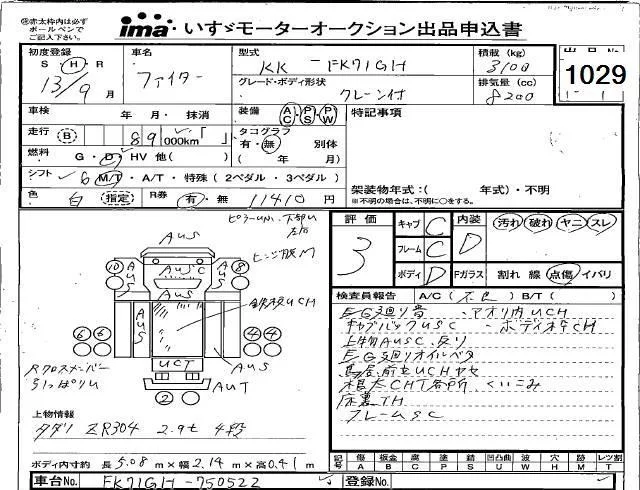 ※赤太枠内は必ず
ボールペンで
ご記入下さい。
ima・いすゞモーターオークション出品申込書
初度登録 S・H・R 13/9月
車名 ファイター
型式 KK－FK71GH
積載(kg) 3100
グレード・ボディ形状 クレーン付
排気量(cc) 8200
1029
車検 年・月・抹消
装備 AC PS PW
特記事項
走行 B 89 000km「 」
タコグラフ 有・無 別体
燃料 G・D・HV 他( )
( 年 月)
シフト 6 M/T・A/T・特殊(2ペダル・3ペダル)
色 白 指定
R券 有・無 11410円
架装物年式：( 年式)・不明
※不明の場合は、不明に○をする。
評価 3
キャブ C
フレーム C
ボディ D
内装 D
汚れ 破れ ヤニ スレ
Fガラス 割れ 線 点傷 イバリ
検査員報告 A/C( 不良 ) B/T( )
AUS
ヒンジ腐M
⑩ AUSC ⑧
AUS AUS
AUS
⑥⑥ ④④
UCT
AUT
②
Rクロスメンバー
引っぱりU
E/G廻り音、アオリ内UCH
キャブバックUSC・ボディオキCH
上物AUSC、反り
E/G廻りオイルベタ
鳥居前立UCHヤセ
根太CHT各所 くいこみ
床裏TH
フレームSC
上物情報
タダノ ZR304 2.9t 4段
ボディ内寸約 長5.08m×幅2.14m×高0.41m
記号 傷A 板金B 腐C 塗D 錆S 凹凸曲U 波W 穴H 跡M レツ割T
車台No. FK71GH-750522
登録No.